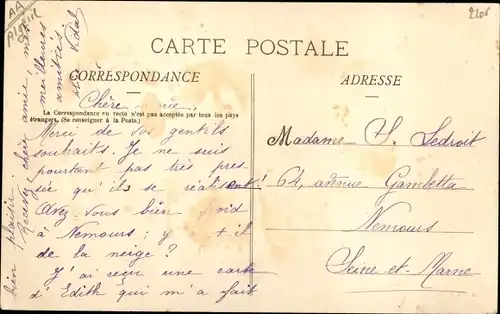 AA
Algérie
2206
CARTE POSTALE
CORRESPONDANCE
ADRESSE
La Correspondance au recto n'est pas acceptée par tous les pays
étrangers. (Se renseigner à la Poste.)
Chère amie,
Merci de vos gentils
souhaits. Je ne suis
pourtant pas très pres
sée qu'ils se réalisent!
Avez-vous bien froid
à Nemours; y a-t-il
de la neige?
J'ai reçu une carte
d'Edith qui m'a fait
bien plaisir.
Recevez, chère amie, mes
meilleures
amitiés
Vidal
Madame Ledroit
64, avenue Gambetta
Nemours
Seine-et-Marne